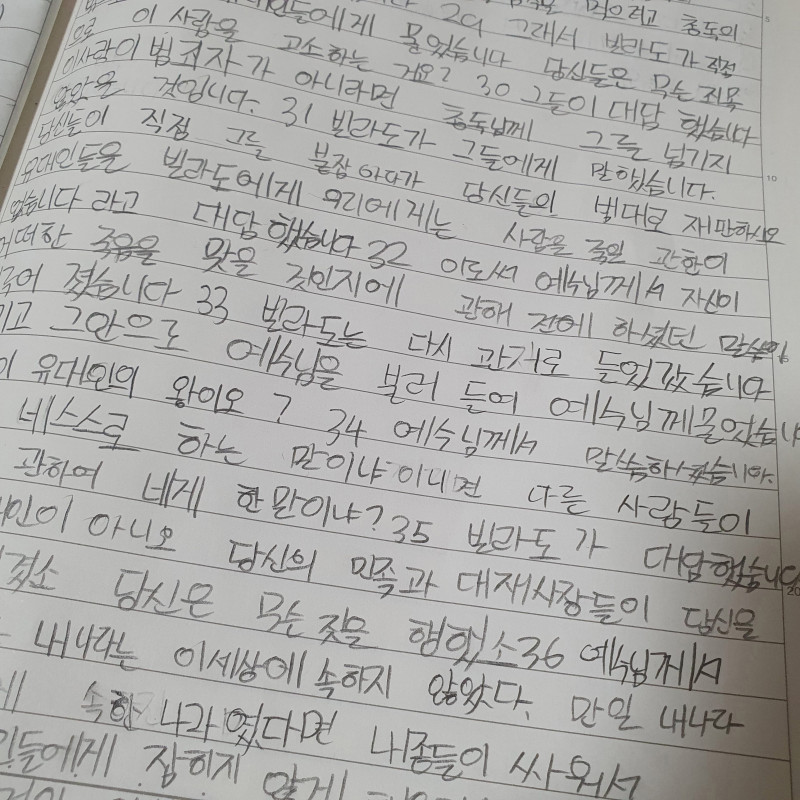 먹으려고 총독의
대인들에게 29 그래서 빌라도가 직접
으로 이 사람을 물었습니다 당신들은 무슨 죄목
고소하는 거요? 30 그들이 대답 했습니다
이사람이 범죄자가 아니라면 총독님께 그를 넘기지
않았을 것입니다. 31 빌라도가 그들에게 말했습니다.
당신들이 직접 그를 붙잡아다가 당신들의 법대로 재판하시오
유대인들은 빌라도에게 우리에게는 사람을 죽일 권한이
없습니다 라고 대답 했습니다 32 이로써 예수님께서 자신이
어떠한 죽음을 맞을 것인지에 관해 전에 하셨던 말씀이
졌습니다 33 빌라도는 다시 관저로 들어갔습니다
그안으로 예수님을 불러 들여 예수님께물었습니
이 유대인의 왕이오? 34 예수님께서 말씀하셨습니다.
네스스로 하는 말이냐 아니면 다른 사람들이
관하여 네게 한말이냐? 35 빌라도가 대답했습니다
인이 아니오 당신의 민족과 대재사장들이 당신을
겼소 당신은 무슨 짓을 행했소 36 예수님께서
내나라는 이세상에 속하지 않았다. 만일 내나라
에 속한 나라였다면 내종들이 싸워서
인들에게 잡히지 않게